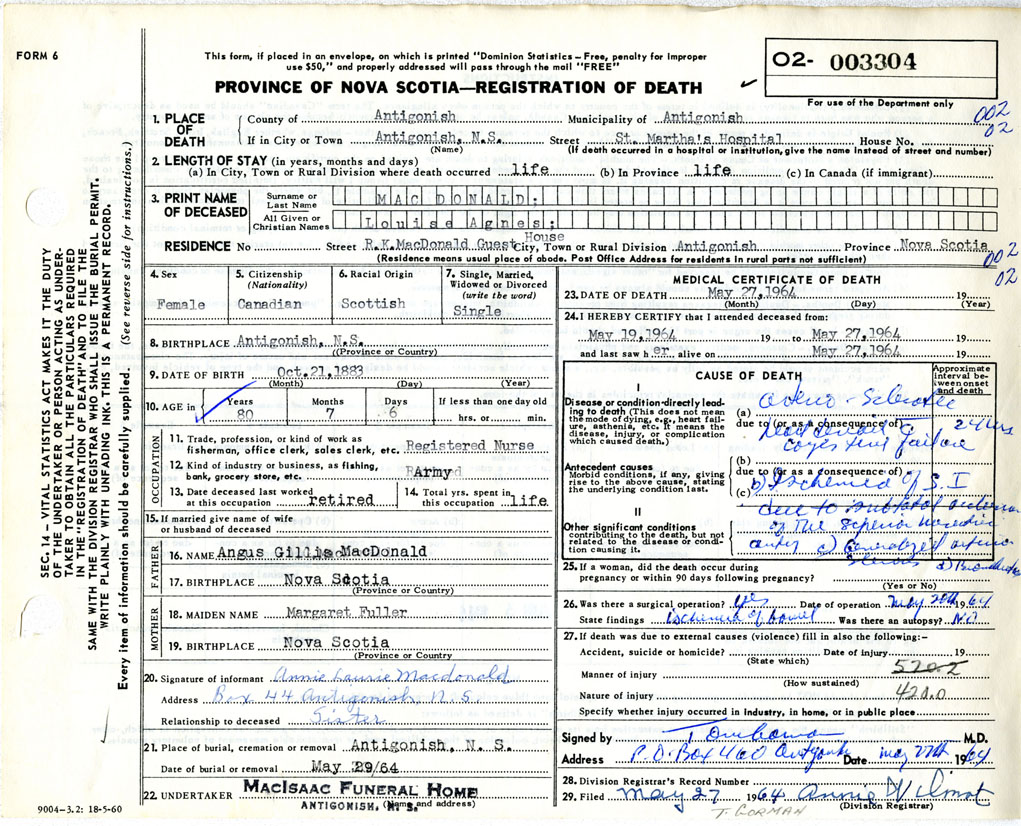 FORM 6
This form, if placed in an envelope, on which is printed "Dominion Statistics – Free, penalty for improper
use $50," and properly addressed will pass through the mail "FREE"
PROVINCE OF NOVA SCOTIA—REGISTRATION OF DEATH
02- 003304
For use of the Department only
002
02
1. PLACE OF DEATH
County of Antigonish Municipality of Antigonish
If in City or Town Antigonish, N.S. Street St. Martha's Hospital House No.
(Name) (If death occurred in a hospital or institution, give the name instead of street and number)
2. LENGTH OF STAY (in years, months and days)
(a) In City, Town or Rural Division where death occurred life (b) In Province life (c) In Canada (if immigrant)
3. PRINT NAME OF DECEASED
Surname or Last Name MAC DONALD:
All Given or Christian Names Louise Agnes:
RESIDENCE No Street R.K.MacDonald Guest House City, Town or Rural Division Antigonish Province Nova Scotia
(Residence means usual place of abode. Post Office Address for residents in rural parts not sufficient)
002
02
4. Sex
Female
5. Citizenship
(Nationality)
Canadian
6. Racial Origin
Scottish
7. Single, Married,
Widowed or Divorced
(write the word)
Single
8. BIRTHPLACE Antigonish, N.S.
(Province or Country)
9. DATE OF BIRTH Oct.21,1883
(Month) (Day) (Year)
10. AGE in
Years Months Days If less than one day old
80 7 6 hrs. or min.
OCCUPATION
11. Trade, profession, or kind of work as
fisherman, office clerk, sales clerk, etc. Registered Nurse
12. Kind of industry or business, as fishing,
bank, grocery store, etc. Army
13. Date deceased last worked
at this occupation retired
14. Total yrs. spent in
this occupation life
15. If married give name of wife
or husband of deceased
FATHER
16. NAME Angus Gillis MacDonald
17. BIRTHPLACE Nova Scotia
(Province or Country)
MOTHER
18. MAIDEN NAME Margaret Fuller
19. BIRTHPLACE Nova Scotia
(Province or Country)
20. Signature of informant Annie Laurie Macdonald
Address Box 44 Antigonish, N.S
Relationship to deceased Sister
21. Place of burial, cremation or removal Antigonish, N. S.
Date of burial or removal May 29/64
22. UNDERTAKER MacIsaac Funeral Home
ANTIGONISH, N. S. (Name and address)
9004—3.2: 18-5-60
SEC. 14 – VITAL STATISTICS ACT MAKES IT THE DUTY
OF THE UNDERTAKER OR PERSON ACTING AS UNDER-
TAKER TO OBTAIN ALL THE PARTICULARS REQUIRED
IN THE "REGISTRATION OF DEATH" AND TO FILE THE
SAME WITH THE DIVISION REGISTRAR WHO SHALL ISSUE THE BURIAL PERMIT.
WRITE PLAINLY WITH UNFADING INK. THIS IS A PERMANENT RECORD.
Every item of information should be carefully supplied (See reverse side for instructions.)
MEDICAL CERTIFICATE OF DEATH
23. DATE OF DEATH May 27,1964 19
(Month) (Day) (Year)
24. I HEREBY CERTIFY that I attended deceased from:
May 19,1964 19 to May 27,1964
and last saw her alive on May 27,1964 19
CAUSE OF DEATH
Approximate
interval be-
tween onset
and death
I
Disease or condition directly lead-
ing to death (This does not mean
the mode of dying, e.g., heart fail-
ure, asthenia, etc. It means the
disease, injury, or complication
which caused death.)
(a) Arterio-Sclerotic
due to (or as a consequence of)
heart disease c 24 hrs
congestive failure
Antecedent causes
Morbid conditions, if any, giving
rise to the above cause, stating
the underlying condition last.
(b)
due to (or as a consequence of)
(c) b) Ischemia of S. I
due to
II
Other significant conditions
contributing to the death, but not
related to the disease or condi-
tion causing it.
of the superior
c) Generalized
25. If a woman, did the death occur during
pregnancy or within 90 days following pregnancy?
(Yes or No)
26. Was there a surgical operation? Yes Date of operation May 20th 1964
State findings Ischemia of bowel Was there an autopsy? No
27. If death was due to external causes (violence) fill in also the following:—
Accident, suicide or homicide? Date of injury 19
(State which)
570.2
Manner of injury
(How sustained)
420.0
Nature of injury
Specify whether injury occurred in industry, in home, or in public place
Signed by M.D.
Address P.O. Box 460 Antigonish Date May 27th 1964
28. Division Registrar's Record Number
29. Filed May 27 1964 Annie Wilmot
(Division Registrar)
T. GORMAN